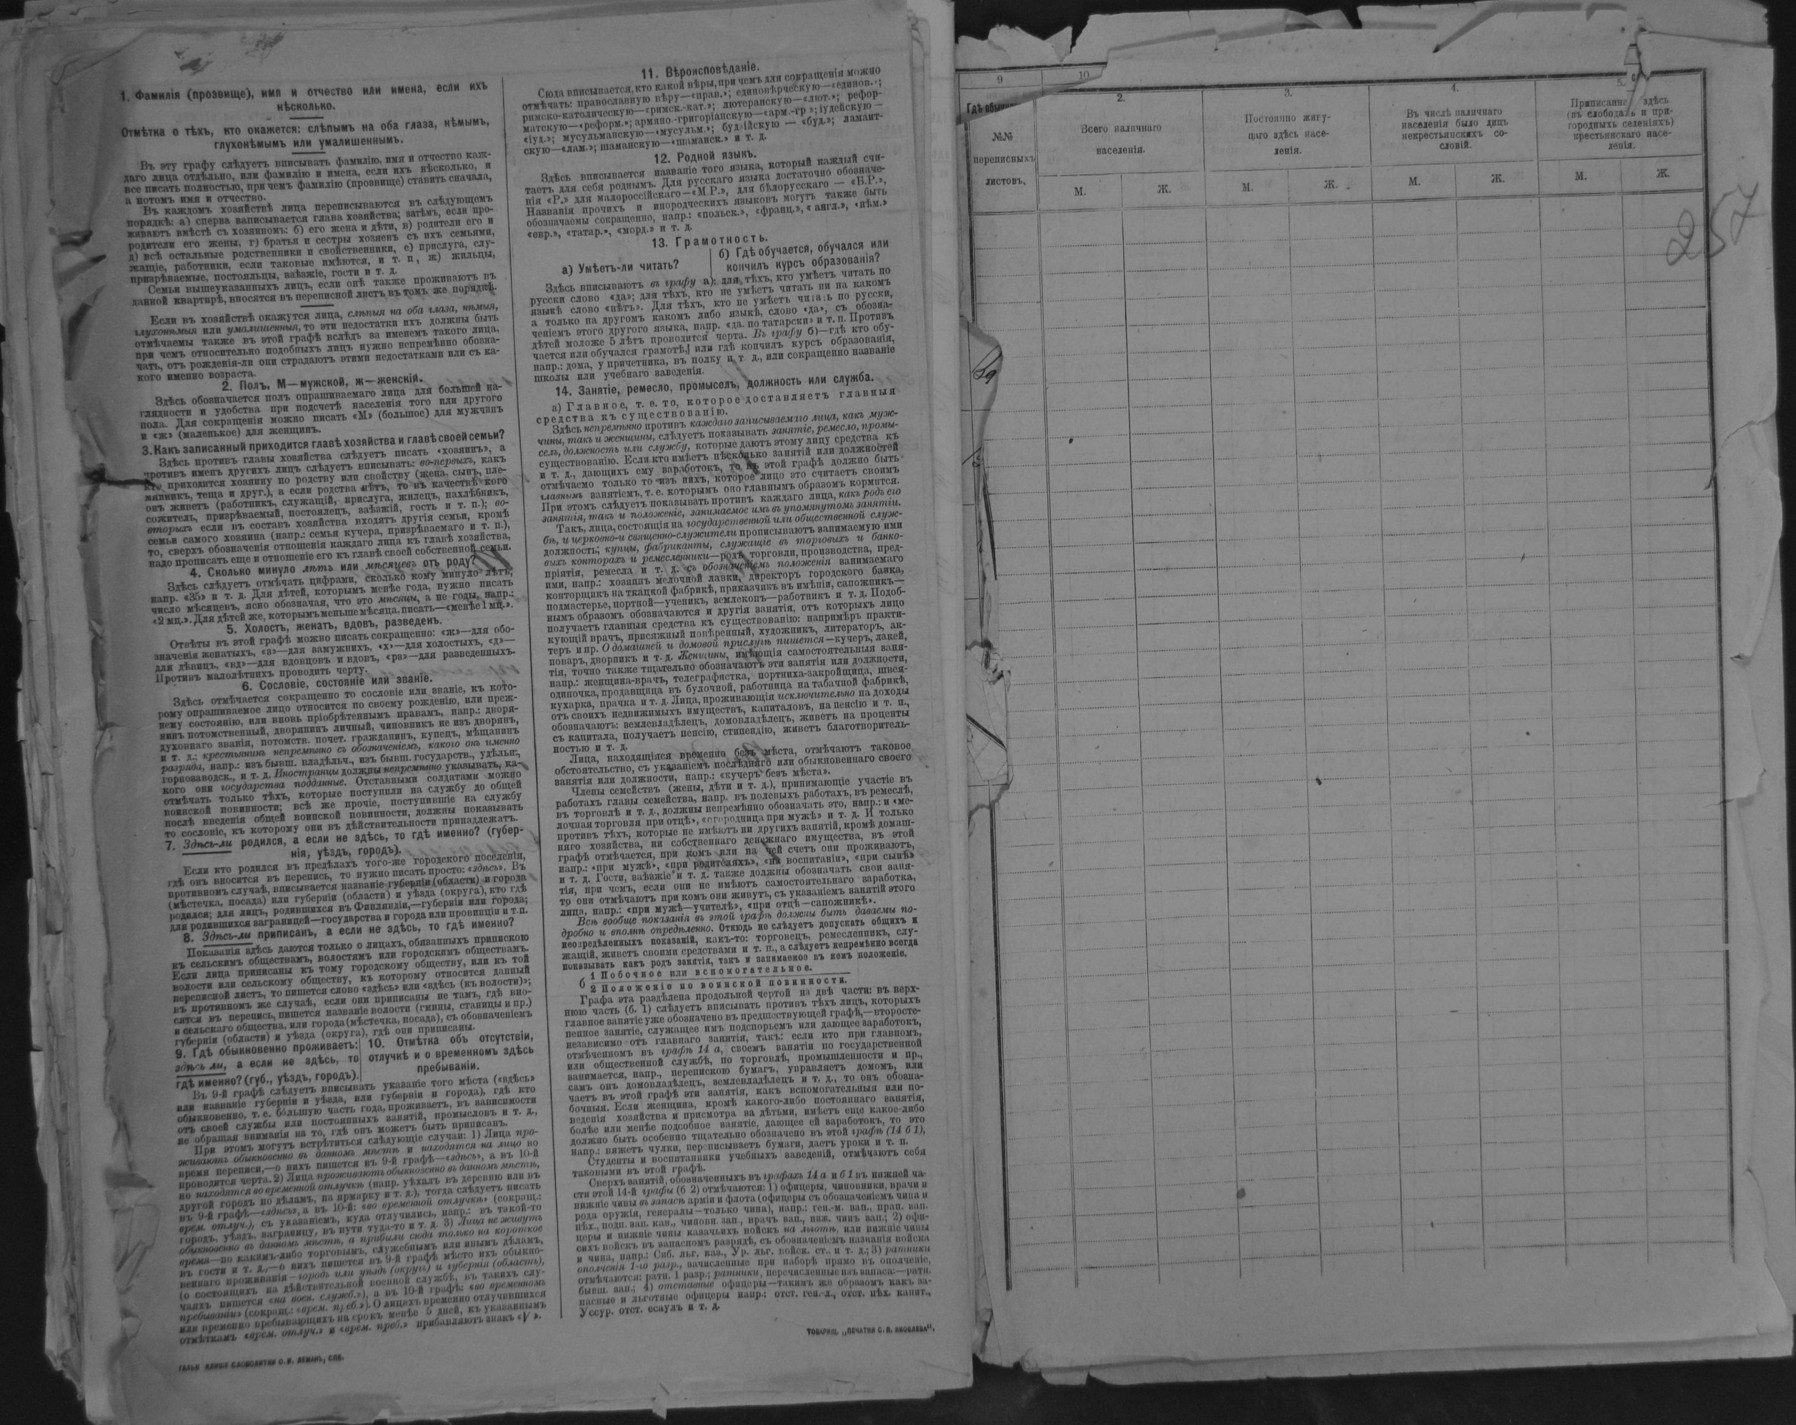 1. Фамилія (прозвище), имя и отчество или имена, если ихъ
нѣсколько.
Отмѣтка о тѣхъ, кто окажется: слѣпымъ на оба глаза, нѣмымъ,
глухонѣмымъ или умалишеннымъ.
Въ эту графу слѣдуетъ вписывать фамилію, имя и отчество каж-
даго лица отдѣльно, или фамилію и имена, если ихъ нѣсколько, и
все писать полностью, при чемъ фамилію (прозвище) ставить сначала,
а потомъ имя и отчество.
Въ каждомъ хозяйствѣ лица переписываются въ слѣдующемъ
порядкѣ: а) сперва записывается глава хозяйства; затѣмъ, если про-
живаютъ вмѣстѣ съ хозяиномъ: б) его жена и дѣти, в) родители его и
родители его жены, г) братья и сестры хозяевъ съ ихъ семьями,
д) всѣ остальные родственники и свойственники, е) прислуга, слу-
жащіе, работники, если таковые имѣются, и т. п., ж) жильцы,
призрѣваемые, постояльцы, заѣзжіе, гости и т. д.
Семьи вышеуказанныхъ лицъ, если онѣ также проживаютъ въ
данной квартирѣ, вносятся въ переписной листъ въ томъ же порядкѣ.
Если въ хозяйствѣ окажутся лица, слѣпыя на оба глаза, нѣмыя,
глухонѣмыя или умалишенныя, то эти недостатки ихъ должны быть
отмѣчаемы также въ этой графѣ вслѣдъ за именемъ такого лица,
при чемъ относительно подобныхъ лицъ нужно непремѣнно обозна-
чать, отъ рожденія-ли они страдаютъ этими недостатками или съ ка-
кого именно возраста.
2. Полъ, М—мужской, ж—женскій.
Здѣсь обозначается полъ опрашиваемаго лица для большей на-
глядности и удобства при подсчетѣ населенія того или другого
пола. Для сокращенія можно писать «М» (большое) для мужчинъ
и «ж» (маленькое) для женщинъ.
3. Какъ записанный приходится главѣ хозяйства и главѣ своей семьи?
Здѣсь противъ главы хозяйства слѣдуетъ писать «хозяинъ», а
противъ именъ другихъ лицъ слѣдуетъ вписывать: во-первыхъ, какъ
кто приходится хозяину по родству или свойству (жена, сынъ, пле-
мянникъ, теща и друг.), а если родства нѣтъ, то въ качествѣ кого
онъ живетъ (работникъ, служащій, прислуга, жилецъ, нахлѣбникъ,
сожитель, призрѣваемый, постоялецъ, заѣзжій, гость и т. п.); во-
вторыхъ если въ составъ хозяйства входятъ другія семьи, кромѣ
семьи самого хозяина (напр.: семья кучера, призрѣваемаго и т. п.),
то, сверхъ обозначенія отношенія каждаго лица къ главѣ хозяйства,
надо прописать еще и отношеніе его къ главѣ своей собственной семьи.
4. Сколько минуло лѣтъ или мѣсяцевъ отъ роду?
Здѣсь слѣдуетъ отмѣчать цифрами, сколько кому минуло лѣтъ,
напр. «35» и т. д. Для дѣтей, которымъ менѣе года, нужно писать
число мѣсяцевъ, ясно обозначая, что это мѣсяцы, а не годы, напр.:
«2 мц.». Для дѣтей же, которымъ меньше мѣсяца, писать—«менѣе 1 мц.».
5. Холостъ, женатъ, вдовъ, разведенъ.
Отвѣты въ этой графѣ можно писать сокращенно: «ж»—для обо-
значенія женатыхъ, «з»—для замужнихъ, «х»—для холостыхъ, «д»—
для дѣвицъ, «вд»—для вдовцовъ и вдовъ, «раз»—для разведенныхъ.
Противъ малолѣтнихъ проводить черту.
6. Сословіе, состояніе или званіе.
Здѣсь отмѣчается сокращенно то сословіе или званіе, къ кото-
рому опрашиваемое лицо относится по своему рожденію, или преж-
нему состоянію, или вновь пріобрѣтеннымъ правамъ, напр.: дворя-
нинъ потомственный, дворянинъ личный, чиновникъ не изъ дворянъ,
духовнаго званія, потомств. почет. гражданинъ, купецъ, мѣщанинъ
и т. д.; крестьянинъ непремѣнно съ обозначеніемъ, какого онъ именно
разряда, напр.: изъ бывш. владѣльч., изъ бывш. государств., удѣльн.,
горнозаводск., и т. д. Иностранцы должны непремѣнно указывать, ка-
кого они государства подданные. Отставными солдатами можно
отмѣчать только тѣхъ, которые поступили на службу до общей
воинской повинности; всѣ же прочіе, поступившіе на службу
послѣ введенія общей воинской повинности, должны показывать
то сословіе, къ которому они въ дѣйствительности принадлежатъ.
7. Здѣсь-ли родился, а если не здѣсь, то гдѣ именно? (губер-
нія, уѣздъ, городъ).
Если кто родился въ предѣлахъ того-же городского поселенія,
гдѣ онъ вносится въ перепись, то нужно писать просто: «здѣсь». Въ
противномъ случаѣ, вписывается названіе губерніи (области) и города
(мѣстечка, посада) или губерніи (области) и уѣзда (округа), кто гдѣ
родился; для лицъ, родившихся въ Финляндіи,—губерніи или города;
для родившихся заграницей—государства и города или провинціи и т.п.
8. Здѣсь-ли приписанъ, а если не здѣсь, то гдѣ именно?
Показанія здѣсь даются только о лицахъ, обязанныхъ припискою
къ сельскимъ обществамъ, волостямъ или городскимъ обществамъ.
Если лица приписаны къ тому городскому обществу, или къ той
волости или сельскому обществу, къ которому относится данный
переписной листъ, то пишется слово «здѣсь» или «здѣсь (къ волости)»;
въ противномъ же случаѣ, если они приписаны не тамъ, гдѣ вно-
сятся въ перепись, пишется названіе волости (гмины, станицы и пр.)
и сельскаго общества, или города (мѣстечка, посада), съ обозначеніемъ
губерніи (области) и уѣзда (округа), гдѣ они приписаны.
9. Гдѣ обыкновенно проживаетъ:
здѣсь ли, а если не здѣсь, то
гдѣ именно? (губ., уѣздъ, городъ).
10. Отмѣтка объ отсутствіи,
отлучкѣ и о временномъ здѣсь
пребываніи.
Въ 9-й графѣ слѣдуетъ вписывать указаніе того мѣста («здѣсь»
или названіе губерніи и уѣзда, или губерніи и города), гдѣ кто
обыкновенно, т. е. бо́льшую часть года, проживаетъ, въ зависимости
отъ своей службы или постоянныхъ занятій, промысловъ и т. д.,
не обращая вниманія на то, гдѣ онъ можетъ быть приписанъ.
При этомъ могутъ встрѣтиться слѣдующіе случаи: 1) Лица про-
живаютъ обыкновенно въ данномъ мѣстѣ и находятся на лицо во
время переписи,—о нихъ пишется въ 9-й графѣ—«здѣсь», а въ 10-й
проводится черта. 2) Лица проживаютъ обыкновенно въ данномъ мѣстѣ,
но находятся во временной отлучкѣ (напр. уѣхалъ въ деревню или въ
другой городъ по дѣламъ, на ярмарку и т. д.), тогда слѣдуетъ писать
въ 9-й графѣ—«здѣсь», а въ 10-й: «во временной отлучкѣ» (сокращ.:
врем. отлуч.), съ указаніемъ, куда отлучились, напр.: въ такой-то
городъ, уѣздъ, заграницу, въ пути туда-то и т. д. 3) Лица не живутъ
обыкновенно въ данномъ мѣстѣ, а прибыли сюда только на короткое
время—по какимъ-либо торговымъ, служебнымъ или инымъ дѣламъ,
въ гости и т. д.,—о нихъ пишется въ 9-й графѣ мѣсто ихъ обыкно-
веннаго проживанія—городъ или уѣздъ (округъ) и губернія (область),
(о состоящихъ на дѣйствительной военной службѣ, въ такихъ слу-
чаяхъ пишется «на воен. службѣ»), а въ 10-й графѣ: «во временномъ
пребываніи» (сокращ.: «врем. преб.»). О лицахъ временно отлучившихся
или временно пребывающихъ на срокъ менѣе 5 дней, къ указаннымъ
отмѣткамъ «врем. отлуч.» и «врем. преб.» прибавляютъ знакъ «V».
11. Вѣроисповѣданіе.
Сюда вписывается, кто какой вѣры, при чемъ для сокращенія можно
отмѣчать: православную вѣру—«прав.»; единовѣрческую—«единов.»;
римско-католическую—«римск.-кат.»; лютеранскую—«лют.»; рефор-
матскую—«реформ.»; армяно-григоріанскую—«арм.-гр»; іудейскую—
«іуд.»; мусульманскую—«мусульм.»; буддійскую — «буд.»; ламаит-
скую—«лам.»; шаманскую—«шаманск.» и т. д.
12. Родной языкъ.
Здѣсь вписывается названіе того языка, который каждый счи-
таетъ для себя роднымъ. Для русскаго языка достаточно обозначе-
нія «Р.» для малороссійскаго—«М.Р.», для бѣлорусскаго — «Б.Р.»,
Названія прочихъ и инородческихъ языковъ могутъ также быть
обозначаемы сокращенно, напр.: «польск.», «франц.», «англ.», «нѣм.»
«евр.», «татар.», «морд.» и т. д.
13. Грамотность.
а) Умѣетъ-ли читать?
б) Гдѣ обучается, обучался или
кончилъ курсъ образованія?
Здѣсь вписываютъ въ графу а): для тѣхъ, кто умѣетъ читать по
русски слово «да»; для тѣхъ, кто не умѣетъ читать ни на какомъ
языкѣ слово «нѣтъ». Для тѣхъ, кто не умѣетъ читать по русски,
а только на другомъ какомъ либо языкѣ, слово «да», съ обозна-
ченіемъ этого другого языка, напр. «да, по татарски» и т. п. Противъ
дѣтей моложе 5 лѣтъ проводится черта. Въ графу б)—гдѣ кто обу-
чается или обучался грамотѣ, или гдѣ кончилъ курсъ образованія,
напр.: дома, у причетника, въ полку и т. д., или сокращенно названіе
школы или учебнаго заведенія.
14. Занятіе, ремесло, промыселъ, должность или служба.
а) Главное, т. е. то, которое доставляетъ главныя
средства къ существованію.
Здѣсь непремѣнно противъ каждаго записываемаго лица, какъ муж-
чины, такъ и женщины, слѣдуетъ показывать занятіе, ремесло, промы-
селъ, должность или службу, которые даютъ этому лицу средства къ
существованію. Если кто имѣетъ нѣсколько занятій или должностей
и т. д., дающихъ ему заработокъ, то въ этой графѣ должно быть
отмѣчаемо только то изъ нихъ, которое лицо это считаетъ своимъ
главнымъ занятіемъ, т. е. которымъ оно главнымъ образомъ кормится.
При этомъ слѣдуетъ показывать противъ каждаго лица, какъ родъ его
занятія, такъ и положеніе, занимаемое имъ въ упомянутомъ занятіи.
Такъ, лица, состоящія на государственной или общественной служ-
бѣ, и церковно-и священно-служители прописываютъ занимаемую ими
должность; купцы, фабриканты, служащіе въ торговыхъ и банко-
выхъ конторахъ и ремесленники—родъ торговли, производства, пред-
пріятія, ремесла и т. д. съ обозначеніемъ положенія занимаемаго
ими, напр.: хозяинъ мелочной лавки, директоръ городского банка,
конторщикъ на ткацкой фабрикѣ, приказчикъ въ имѣніи, сапожникъ—
подмастерье, портной—ученикъ, землекопъ—работникъ и т. д. Подоб-
нымъ образомъ обозначаются и другія занятія, отъ которыхъ лицо
получаетъ главныя средства къ существованію: напримѣръ практи-
кующій врачъ, присяжный повѣренный, художникъ, литераторъ, ак-
теръ и пр. О домашней и домовой прислугѣ пишется—кучеръ, лакей,
поваръ, дворникъ и т. д. Женщины, имѣющія самостоятельныя заня-
тія, точно также тщательно обозначаютъ эти занятія или должности,
напр.: женщина-врачъ, телеграфистка, портниха-закройщица, швея-
одиночка, продавщица въ булочной, работница на табачной фабрикѣ,
кухарка, прачка и т. д. Лица, проживающія исключительно на доходы
отъ своихъ недвижимыхъ имуществъ, капиталовъ, на пенсію и т. п.,
обозначаютъ: землевладѣлецъ, домовладѣлецъ, живетъ на проценты
съ капитала, получаетъ пенсію, стипендію, живетъ благотворитель-
ностью и т. д.
Лица, находящіяся временно безъ мѣста, отмѣчаютъ таковое
обстоятельство, съ указаніемъ послѣдняго или обыкновеннаго своего
занятія или должности, напр.: «кучеръ безъ мѣста».
Члены семействъ (жены, дѣти и т. д.), принимающіе участіе въ
работахъ главы семейства, напр. въ полевыхъ работахъ, въ ремеслѣ,
въ торговлѣ и т. д., должны непремѣнно обозначать это, напр.: и «ме-
лочная торговля при отцѣ», «огородница при мужѣ» и т. д. И только
противъ тѣхъ, которые не имѣютъ ни другихъ занятій, кромѣ домаш-
няго хозяйства, ни собственнаго денежнаго имущества, въ этой
графѣ отмѣчается, при комъ или на чей счетъ они проживаютъ,
напр.: «при мужѣ», «при родителяхъ», «на воспитаніи», «при сынѣ»
и т. д. Гости, заѣзжіе и т. д. также должны обозначать свои заня-
тія, при чемъ, если они не имѣютъ самостоятельнаго заработка,
то они отмѣчаютъ при комъ они живутъ, съ указаніемъ занятій этого
лица, напр.: «при мужѣ—учителѣ», «при отцѣ—сапожникѣ».
Всѣ вообще показанія въ этой графѣ должны быть даваемы по-
дробно и вполнѣ опредѣленно. Отнюдь не слѣдуетъ допускать общихъ и
неопредѣленныхъ показаній, какъ-то: торговецъ, ремесленникъ, слу-
жащій, живетъ своими средствами и т. п., а слѣдуетъ непремѣнно всегда
показывать какъ родъ занятія, такъ и занимаемое въ немъ положеніе.
б 1 Побочное или вспомогательное.
2 Положеніе по воинской повинности.
Графа эта раздѣлена продольной чертой на двѣ части: въ верх-
нюю часть (б. 1) слѣдуетъ вписывать противъ тѣхъ лицъ, которыхъ
главное занятіе уже обозначено въ предшествующей графѣ,—второсте-
пенное занятіе, служащее имъ подспорьемъ или дающее заработокъ,
независимо отъ главнаго занятія, такъ: если кто при главномъ,
отмѣченномъ въ графѣ 14 а, своемъ занятіи по государственной
или общественной службѣ, по торговлѣ, промышленности и пр.,
занимается, напр., перепискою бумагъ, управляетъ домомъ, или
самъ онъ домовладѣлецъ, землевладѣлецъ и т. д., то онъ обозна-
чаетъ въ этой графѣ эти занятія, какъ вспомогательныя или по-
бочныя. Если женщина, кромѣ какого-либо постояннаго занятія,
веденія хозяйства и присмотра за дѣтьми, имѣетъ еще какое-либо
болѣе или менѣе подсобное занятіе, дающее ей заработокъ, то это
должно быть особенно тщательно обозначено въ этой графѣ (14 б 1),
напр.: вяжетъ чулки, переписываетъ бумаги, даетъ уроки и т. п.
Студенты и воспитанники учебныхъ заведеній, отмѣчаютъ себя
таковыми въ этой графѣ.
Сверхъ занятій, обозначенныхъ въ графахъ 14 а и б 1 въ нижней ча-
сти этой 14-й графы (б 2) отмѣчаются: 1) офицеры, чиновники, врачи и
нижніе чины въ запасѣ арміи и флота (офицеры съ обозначеніемъ чина и
рода оружія, генералы—только чина), напр.: ген.-м. зап., прап. зап.
пѣх., подп. зап. кав., чиновн. зап., врачъ зап., ниж. чинъ зап.; 2) офи-
церы и нижніе чины казачьихъ войскъ на льготѣ, или нижніе чины
сихъ войскъ въ запасномъ разрядѣ, съ обозначеніемъ названія войска
и чина, напр.: Сиб. льг. каз., Ур. льг. войск. ст., и т. д.; 3) ратники
ополченія 1-го разр., зачисленные при наборѣ прямо въ ополченіе,
отмѣчаются: ратн. 1 разр.; ратники, перечисленные изъ запаса:—ратн.
бывш. зап.; 4) отставные офицеры—такимъ же образомъ какъ за-
пасные и льготные офицеры напр.: отст. ген.-л., отст. пѣх. капит.,
Уссур. отст. есаулъ и т. д.
ТОВАРИЩ. „ПЕЧАТНЯ С. П. ЯКОВЛЕВА“.
9
10
Гдѣ обык
№№
переписныхъ
листовъ.
2.
Всего наличнаго
населенія.
М. Ж.
3.
Постоянно живу-
щаго здѣсь насе-
ленія.
М. Ж.
4.
Въ числѣ наличнаго
населенія было лицъ
некрестьянскихъ со-
словій.
М. Ж.
5.
Приписаннаго здѣсь
(въ слободахъ и при-
городныхъ селеніяхъ)
крестьянскаго насе-
ленія.
М. Ж.
257